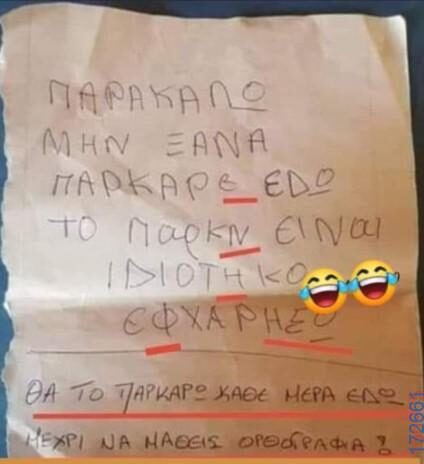 ΠΑΡΑΚΑΛΩ
ΜΗΝ ΞΑΝΑ
ΠΑΡΚΑΡΕ ΕΔΩ
ΤΟ ΠαρΚΝ ΕΙΝαι
ΙΔΙΟΤΗΚΟ
ΕΦΧΑΡΗΣΟ
ΘΑ ΤΟ ΠΑΡΚΑΡΩ ΚΑΘΕ ΜΕΡΑ ΕΔΩ
ΜΕΧΡΙ ΝΑ ΜΑΘΕΙΣ ΟΡΘΟΓΡΑΦΙΑ !
172661